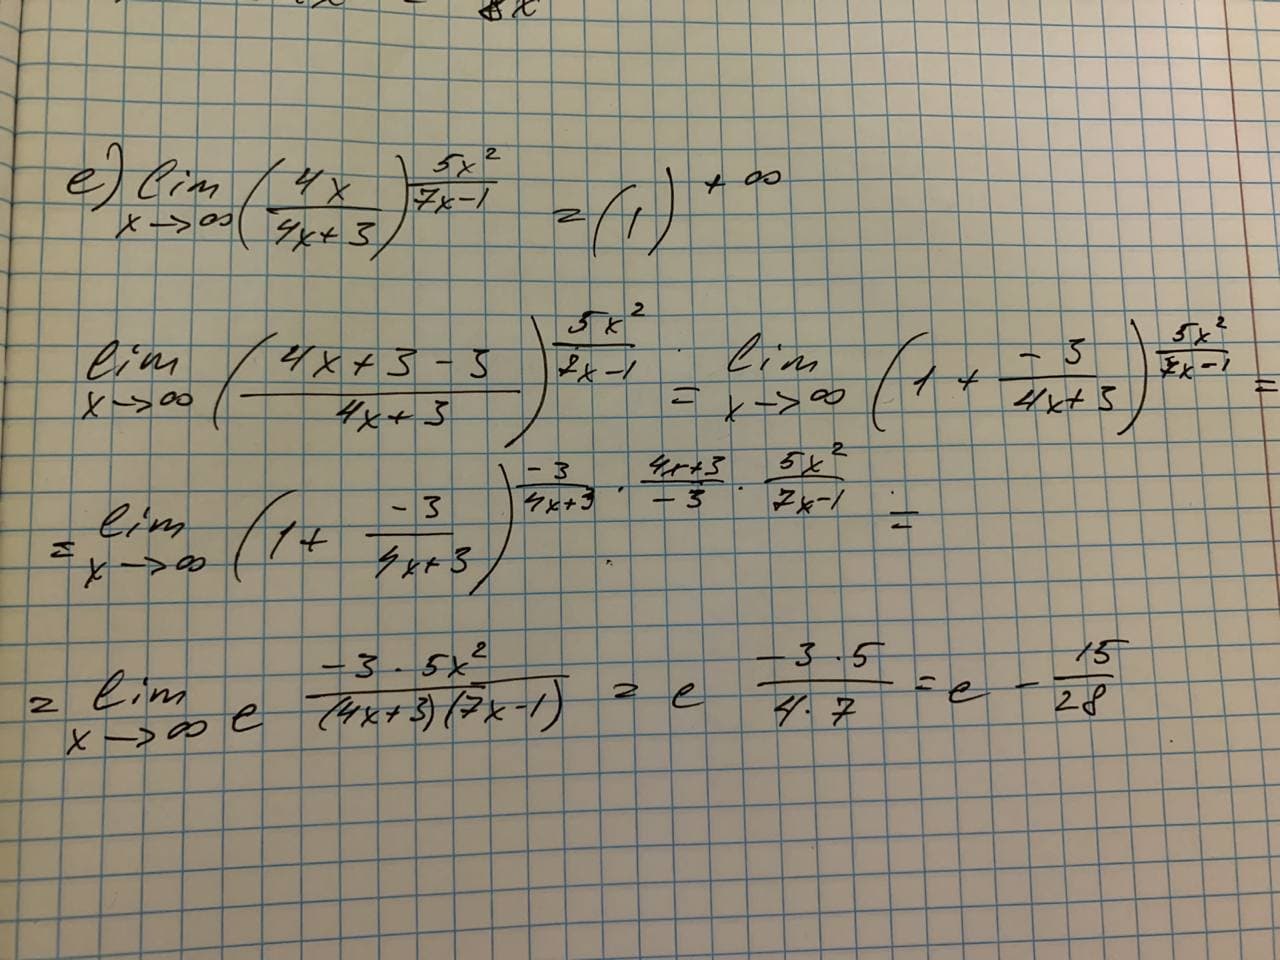 e) lim x→∞ (4x/(4x+3))^(5x²/(7x-1)) = (1)^+∞
lim x→∞ ((4x+3-3)/(4x+3))^(5x²/(7x-1)) = lim x→∞ (1 + -3/(4x+3))^(5x²/(7x-1)) =
= lim x→∞ (1 + -3/(4x+3))^(-3/(4x+3) · (4x+3)/-3 · 5x²/(7x-1)) =
= lim x→∞ e^(-3·5x²/((4x+3)(7x-1))) = e^(-3·5/(4·7)) = e^(-15/28)